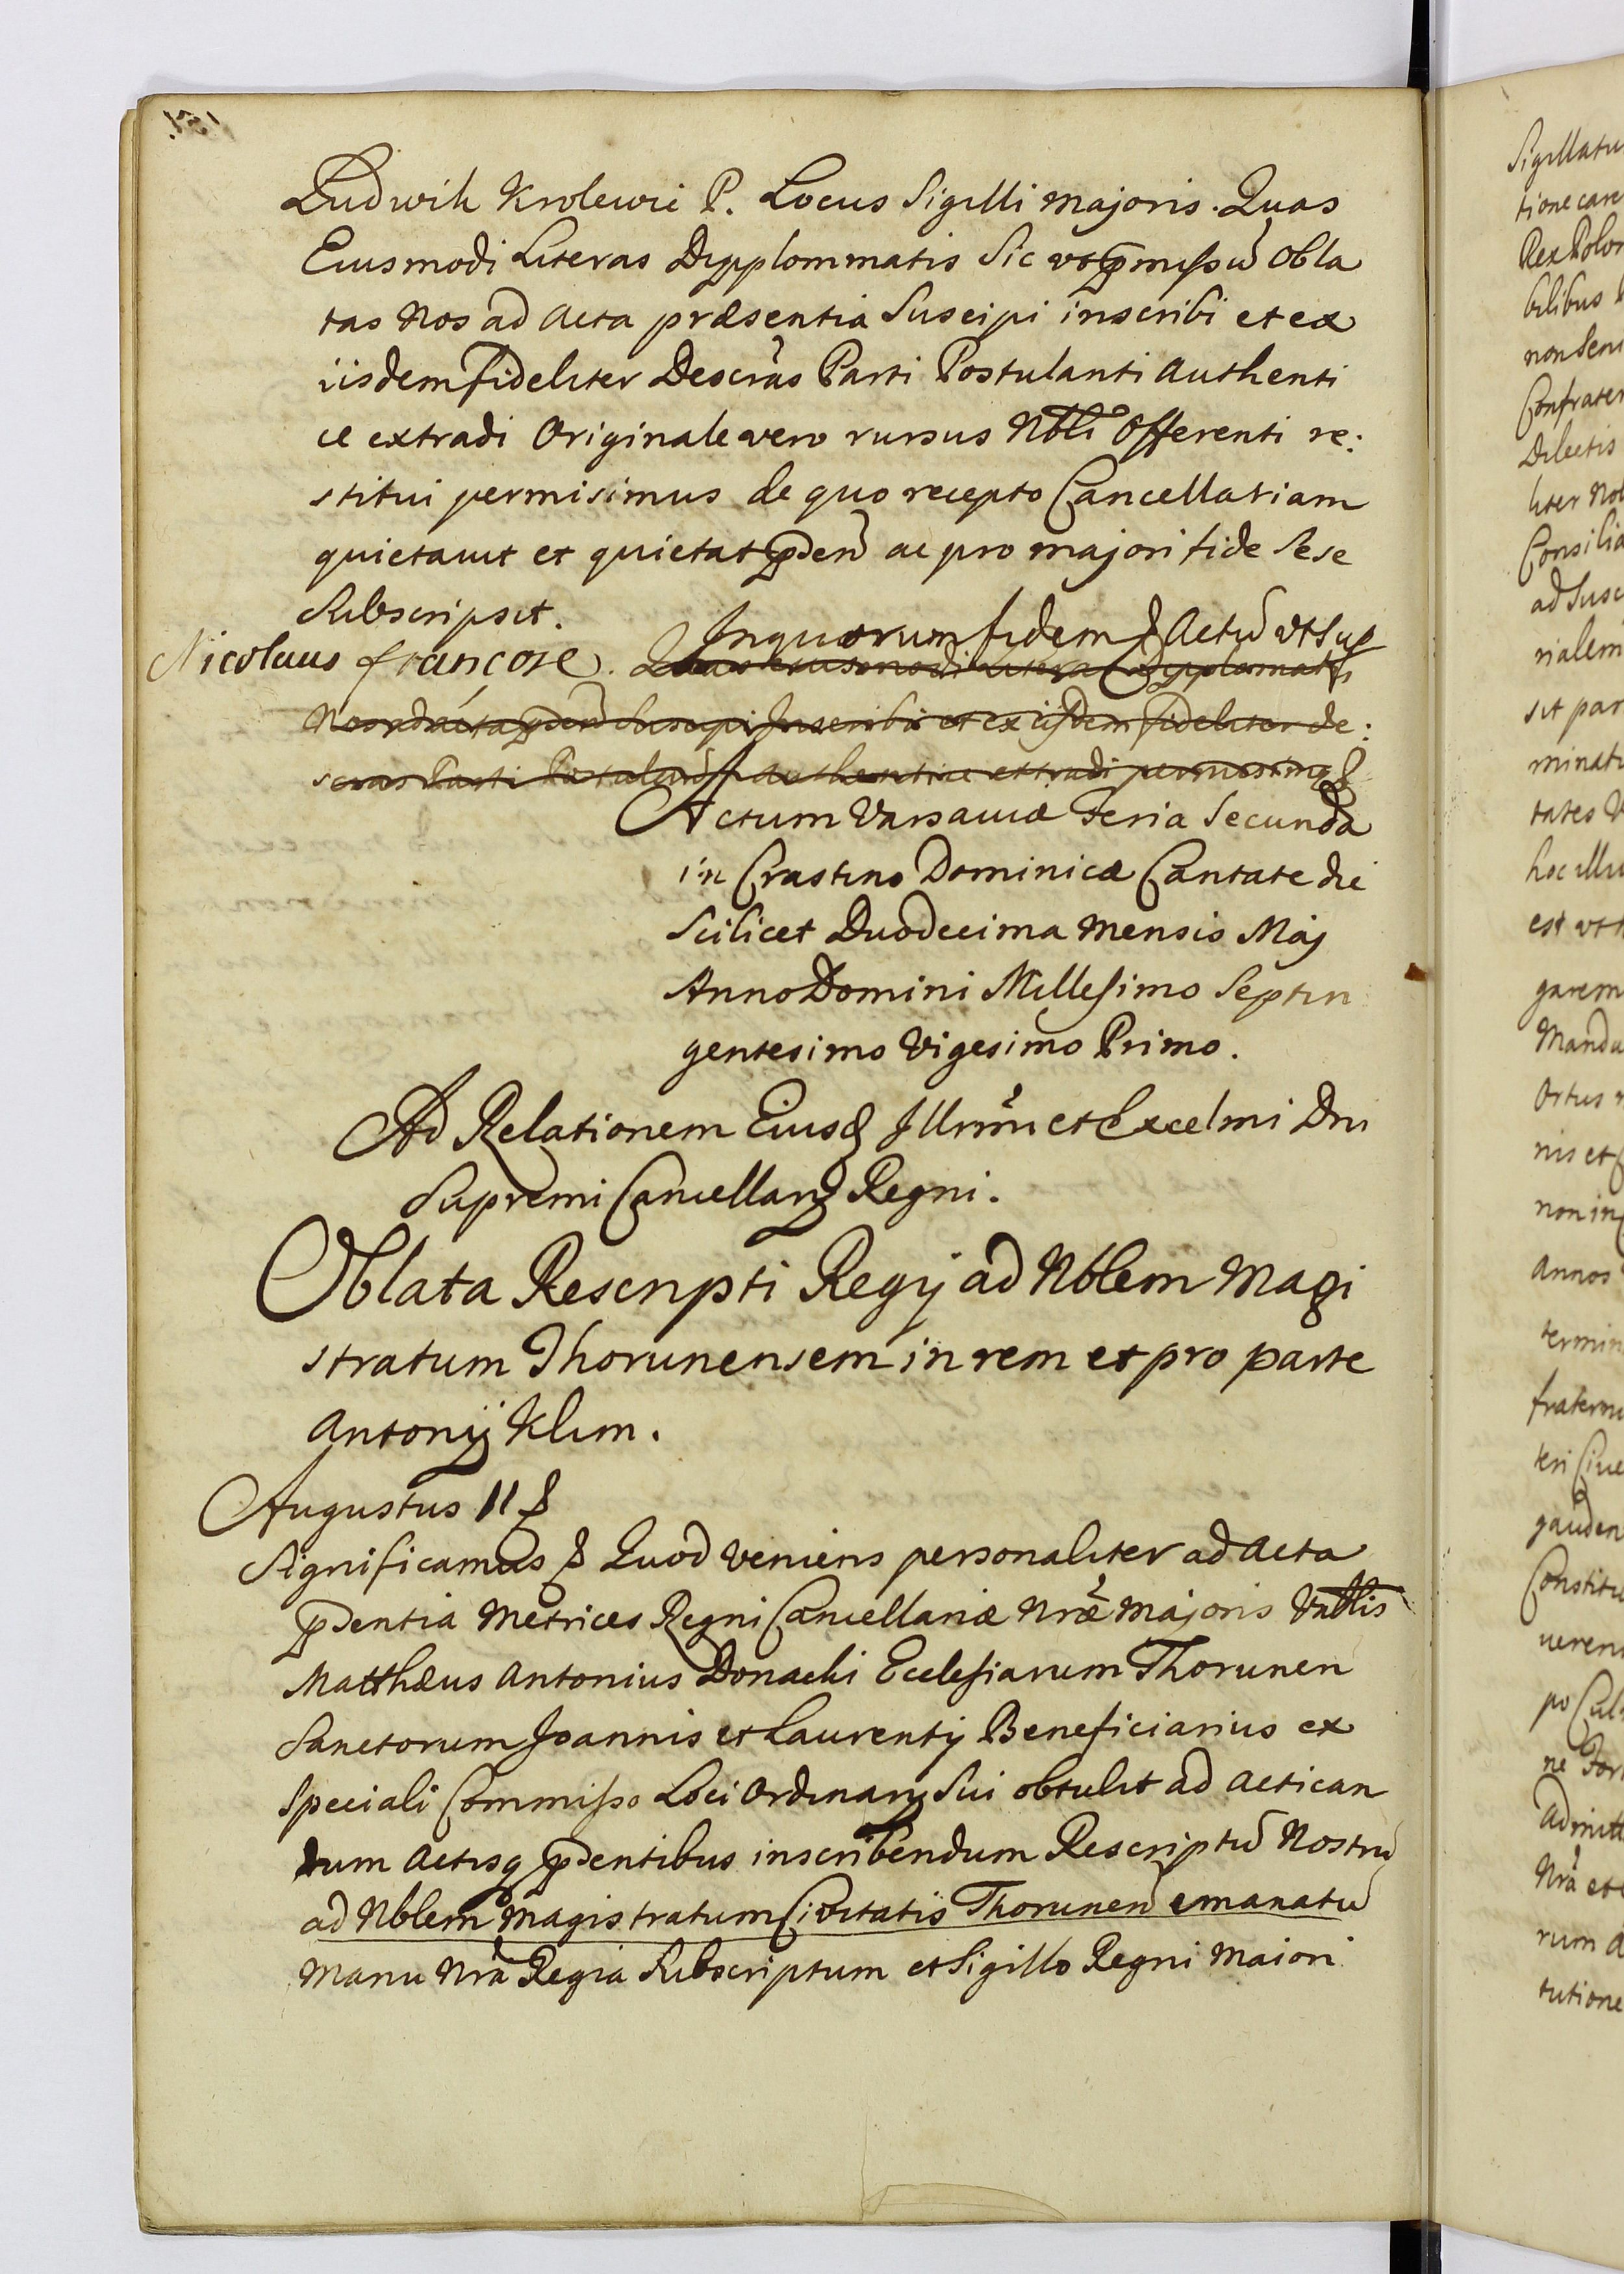 Ludwik Krolewic P. Locus Sigilli majoris. Quas
Eiusmodi Literas Dypplommatis Sic ut p̄missū Obla
tas Nos ad Acta præsentia Suscipi inscribi et ex
iisdem fideliter Descrās Parti Postulanti Authenti
ce extradi Originale vero rursus Nbli Offerenti re:
stitui permisimus de quo recepto Cancellariam
quietavit et quietat p̄den̄ ac pro majori fide Sese
Subscripsit.
Nicolaus françose. In quorum fidem & Actū ut Sup
Quas Eiusmodi Literas Dypplomatis
Nos ad Acta p̄den̄ Suscipi Inscribi et ex iisdem fideliter de:
scras Parti Postulanti Authentice extradi permisimq &
Actum Varsaviæ Feria Secunda
in Crastino Dominicæ Cantate die
Scilicet Duodecima Mensis Maj
Anno Domini Millesimo Septin
gentesimo Vigesimo Primo.
Ad Relationem Eiusd Illrmi et Excelmi Dni
Supremi Cancellarij Regni.
Oblata Rescripti Regij ad Nblem Magi
stratum Thorunensem in rem et pro parte
Antonij Klim.
Augustus II &
Significamus & Quod veniens personaliter ad Acta
p̄dentia Metrices Regni Cancellariæ Nræ Majoris Vnblis
Matthæus Antonius Donachi Ecclesiarum Thorunen
Sanctorum Joannis et Laurentij Beneficiarius ex
Speciali Commisso Loci Ordinarij Sui obtulit ad Actican
dum Actisq p̄dentibus inscribendum Rescriptū Nostrū
ad Nblem Magistratum Civitatis Thorunen̄ emanatū
Manu Nrā Regia Subscriptum et Sigillo Regni Maiori
Sigillatu
tione care
Rex Polon
bilibus
non Seni
Confrater
Dilectis
liter Nob
Consilia
ad Susc
rialem
sit par
minatu
tates
hoc illu
est ut
garem
Manda
Ortus
nis et
non in
Annos
termin
fratern
teri Cive
gauden
Constitu
veren
po Cul
ne For
Admitt
Nrā et
rum
tutione